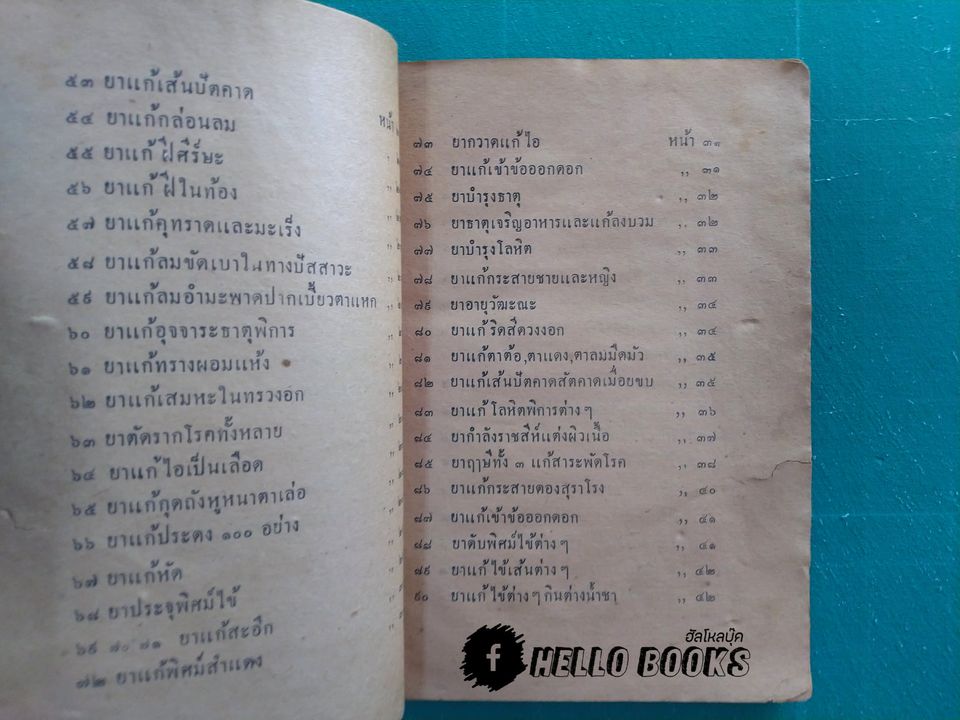 ๕๓ ยาแก้เส้นปัตคาด
๕๔ ยาแก้กล่อนลม
หน้า
๕๕ ยาแก้ฝีศีร์ษะ
๕๖ ยาแก้ฝีในท้อง
๕๗ ยาแก้คุทราดและมะเร็ง
๕๘ ยาแก้ลมขัดเบาในทางปัสสาวะ
๕๙ ยาแก้ลมอำมะพาดปากเบี้ยวตาแหก
๖๐ ยาแก้อุจจาระธาตุพิการ
๖๑ ยาแก้ทรางผอมแห้ง
๖๒ ยาแก้เสมหะในทรวงอก
๖๓ ยาตัดรากโรคทั้งหลาย
๖๔ ยาแก้ไอเป็นเลือด
๖๕ ยาแก้กุดถังหูหนาตาเล่อ
๖๖ ยาแก้ประดง ๑๐๐ อย่าง
๖๗ ยาแก้หัด
๖๘ ยาประจุพิศม์ไข้
๖๙ ๗๐ ๗๑ ยาแก้สะอึก
๗๒ ยาแก้พิศม์สำแดง
๗๓ ยากวาดแก้ไอ หน้า
๗๔ ยาแก้เข้าข้อออกดอก ,, ๓๑
๗๕ ยาบำรุงธาตุ ,, ๓๒
๗๖ ยาธาตุเจริญอาหารและแก้ลงบวม ,, ๓๒
๗๗ ยาบำรุงโลหิต ,, ๓๓
๗๘ ยาแก้กระสายชายและหญิง ,, ๓๓
๗๙ ยาอายุวัฒะณะ ,, ๓๔
๘๐ ยาแก้ริดสีดวงงอก ,, ๓๔
๘๑ ยาแก้ตาต้อ,ตาแดง,ตาลมมืดมัว ,, ๓๕
๘๒ ยาแก้เส้นปัตคาดสัตคาดเมื่อยขบ ,, ๓๕
๘๓ ยาแก้โลหิตพิการต่างๆ ,, ๓๖
๘๔ ยากำลังราชสีห์แต่งผิวเนื้อ ,, ๓๗
๘๕ ยาฤาษีทั้ง ๓ แก้สาระพัดโรค ,, ๓๘
๘๖ ยาแก้กระสายดองสุราโรง ,, ๔๐
๘๗ ยาแก้เข้าข้อออกดอก ,, ๔๑
๘๘ ยาดับพิศม์ไข้ต่างๆ ,, ๔๑
๘๙ ยาแก้ไข้เส้นต่างๆ ,, ๔๒
๙๐ ยาแก้ไข้ต่างๆกินต่างน้ำชา ,, ๔๒
ฮัลโหลบุ๊ค
f HELLO BOOKS